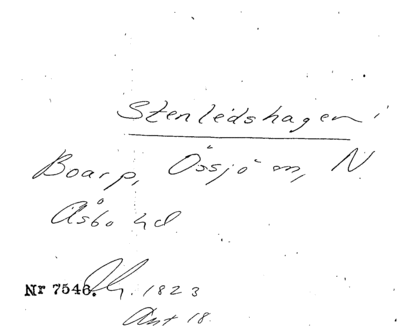 Stenledshagen i
Boarp, Össjö sn, N.
Åsbo hd
Nr 7546. 1823
Ant 18.